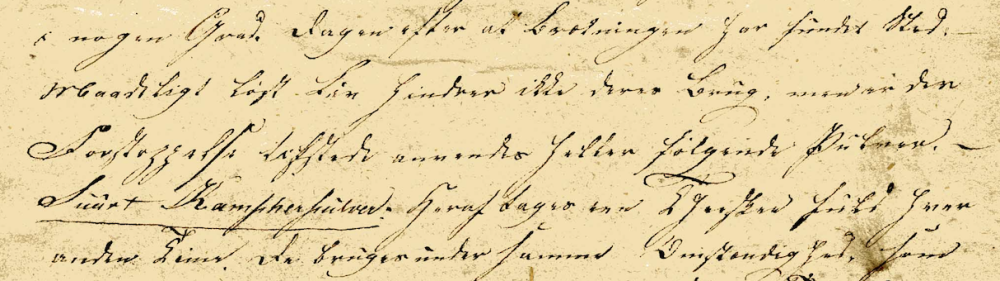 i nogen Grad. Dagen efter at Brækningen har fundet Sted.
Maadeligt løst Liv hindrer ikke deres Brug, men er der
Forstoppelse tilstede anvendes heller følgende Pulver. —
Suurt Kampherpulver. Heraf tages een Theeskee fuld hver
anden Time. De bruges under samme Omstændighed, som